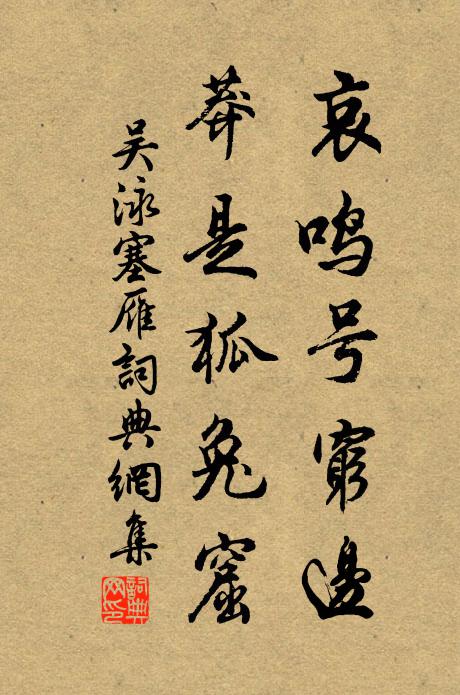 哀鸣号窮邊
莽是狐兔窟
吴泳塞雁詞典網集
詞典网印